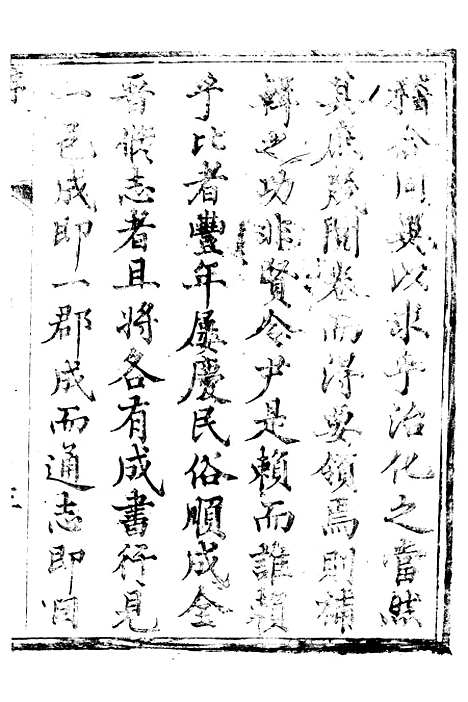 稽合同異以求乎治化之當然
其庶幾開卷而得要領焉則補
輯之功非賢令尹是賴而誰賴
乎比者豐年屢慶民俗順成全
晉候志者且將各有成書行見
一邑成即一郡成而通志即因
序
三